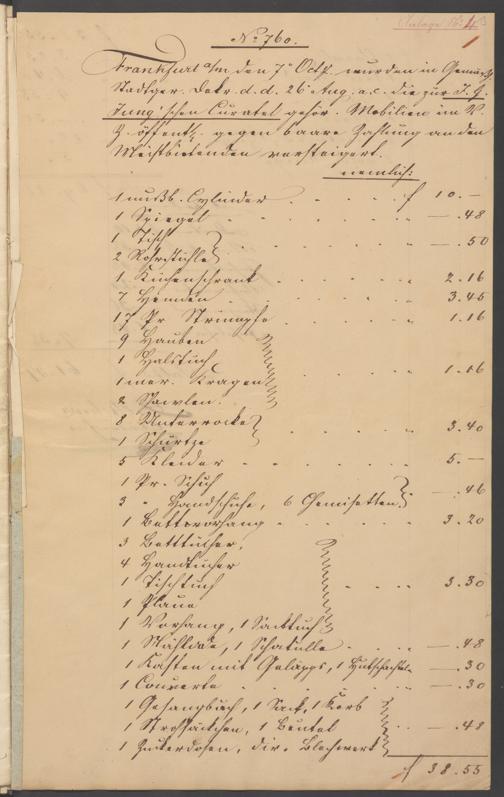 Anlage No. 4
No 760.
Frankfurt a/m den 7n Octb. wurden in Gemäsh.
Stadtger. Dekr. d. d. 26 Aug. a. c. die zur J. G.
Jung'schen Curatel gehör. Mobilien im V.
Z. öffentl. gegen baare Zahlung an den
Meistbietenden versteigert.
nemlich:
1 nußb. Cylinder f 10. —
1 Spiegel — .48
1 Tisch — .50
2 Rohrstühle
1 Küchenschrank 2.16
7 Hemden 3.45
17 Pr Strümpfe 1.16
9 Hauben
1 Halstuch
1 mer. Kragen 1.16
2 Shawlen.
8 Unterröcke 3.40
1 Schürtze
5 Kleider 5. —
1 Pr. Schuh
3 " Handschuhe, 6 Chemisetten — .46
1 Bettvorhang 3.20
3 Betttücher,
4 Handtücher
1 Tischtuch 3.30
1 Plaue
1 Vorhang, 1 Sacktuch
1 Schatulle — .48
1 Kasten mit 1 Hutschachtel — .30
1 Couverte — .30
1 Gesangbuch, 1 Sack, 1 Korb
1 Strohsäckchen, 1 Beutel — .48
1 Zuckerdosen, div. Blechwerk
f 38.55